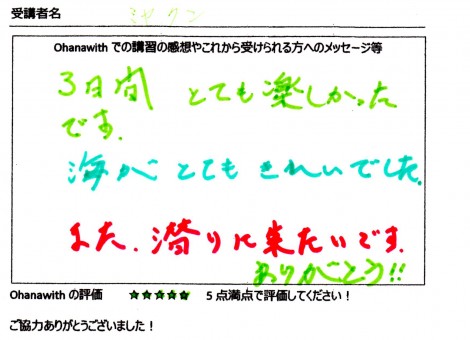 受講者名 ミヤタン
Ohanawith での講習の感想やこれから受けられる方へのメッセージ等
3日間 とても楽しかった
です.
海が とても きれいでした.
また、潜りに来たいです.
ありがとう!!
Ohanawith の評価 ★★★★★ 5点満点で評価してください！
ご協力ありがとうございました！